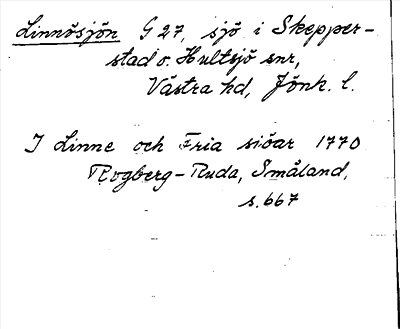 Linnösjön G 27, sjö i Skepper-
stad o. Hultsjö snr,
Västra hd, Jönk. l.
I Linne och Fria siöar 1770
Rogberg-Ruda, Småland,
s. 667